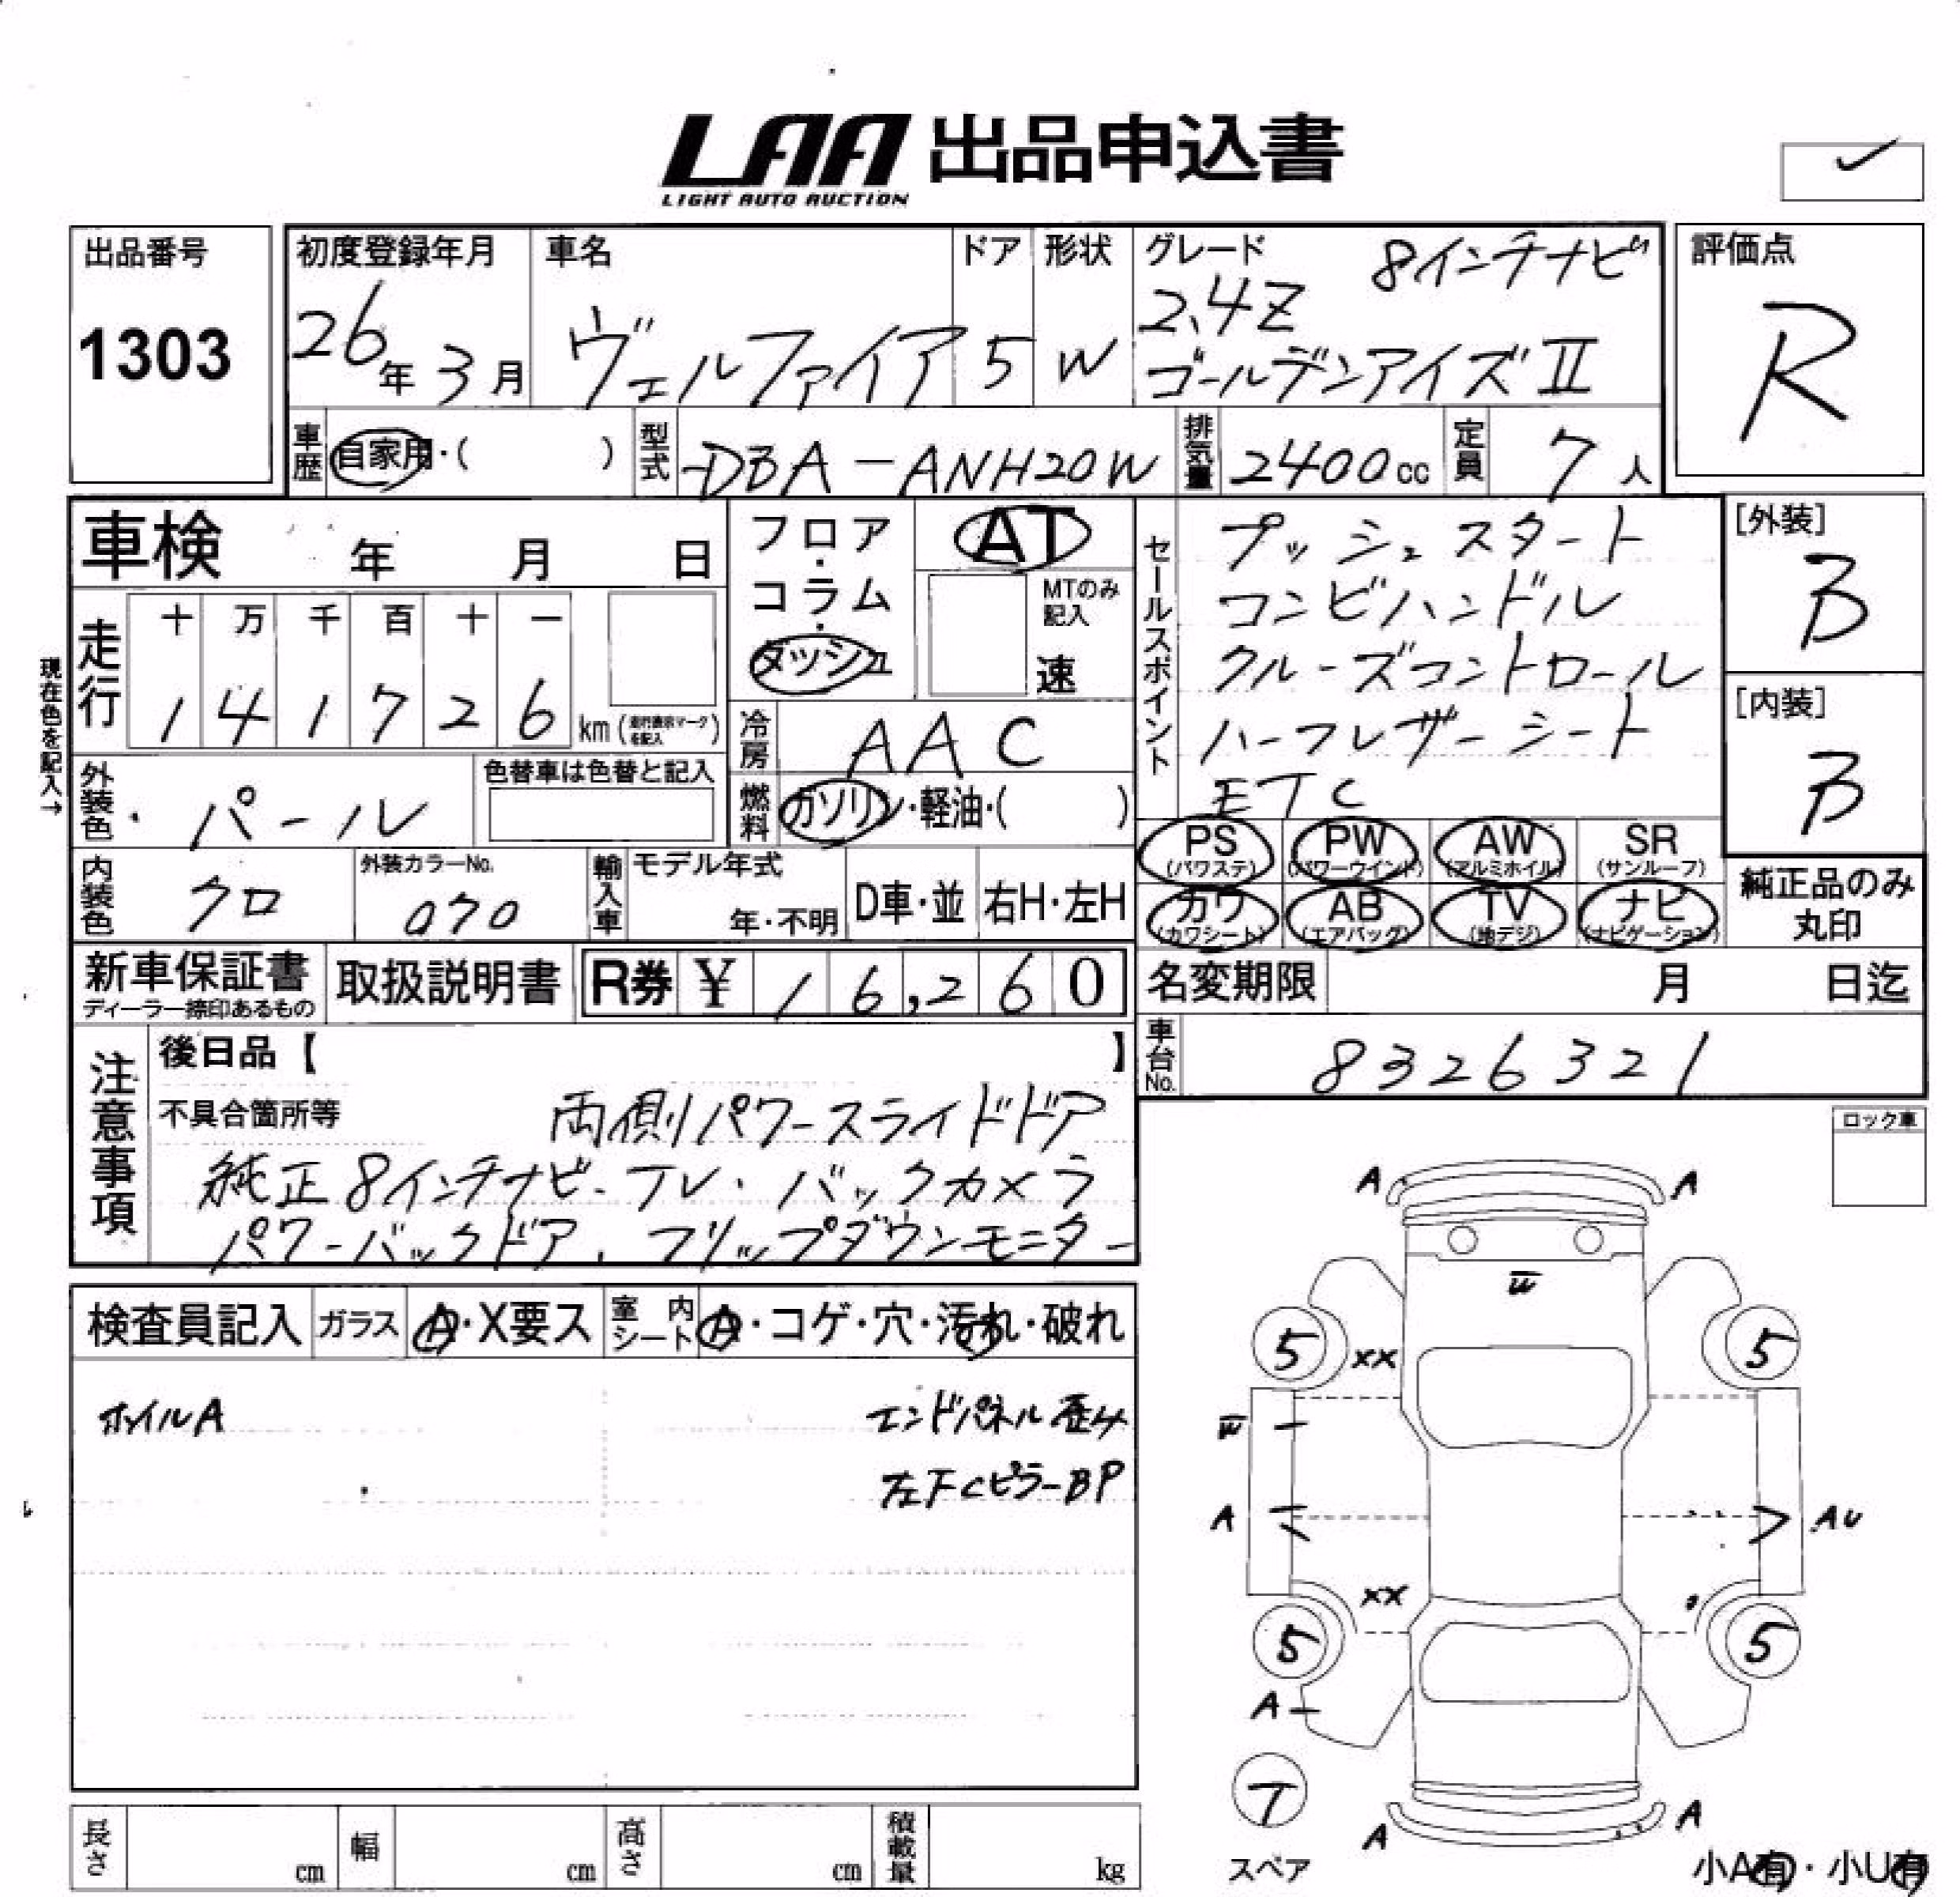 LAA 出品申込書
LIGHT AUTO AUCTION
出品番号
1303
初度登録年月
26年3月
車名
ヴェルファイア
ドア
5
形状
W
グレード 8インチナビ
2.4Z
ゴールデンアイズⅡ
評価点
R
車歴 自家用・( )
型式 DBA-ANH20W
排気量 2400cc
定員 7人
車検 年 月 日
現在色を記入→
走行
十 万 千 百 十 一
1 4 1 7 2 6 km(走行表示マークを記入)
フロア・コラム・ダッシュ
AT
MTのみ記入
速
冷房 AAC
燃料 ガソリン・軽油・( )
外装色 パール
色替車は色替と記入
内装色 クロ
外装カラーNo.
070
輸入車
モデル年式
年・不明
D車・並
右H・左H
セールスポイント
プッシュスタート
コンビハンドル
クルーズコントロール
ハーフレザーシート
ETC
[外装]
B
[内装]
B
PS (パワステ)
PW (パワーウインド)
AW (アルミホイル)
SR (サンルーフ)
カワ (カワシート)
AB (エアバッグ)
TV (地デジ)
ナビ (ナビゲーション)
純正品のみ丸印
新車保証書
ディーラー捺印あるもの
取扱説明書
R券 ¥ 16,260
名変期限 月 日迄
車台No. 8326321
注意事項
後日品【 】
不具合箇所等 両側パワースライドドア
純正8インチナビ・TV・バックカメラ
パワーバックドア、フリップダウンモニター
ロック車
検査員記入
ガラス A・X要ス
室内シート A・コゲ・穴・汚れ・破れ
ホイルA
エンドパネル歪み
左下CピラーBP
A A
W
5 XX 5
W
A AU
XX
5 5
A
T
スペア
A A
小A有・小U有
長さ cm
幅 cm
高さ cm
積載量 kg